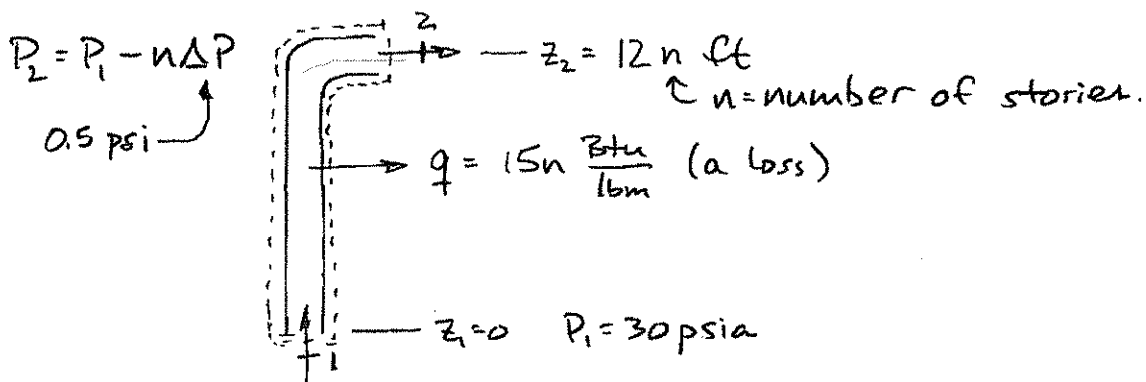 P₂ = P₁ - nΔP
0.5 psi
2
z₂ = 12n ft
n = number of stories.
q = 15n Btu/lbm (a loss)
z₁ = 0 P₁ = 30 psia
1